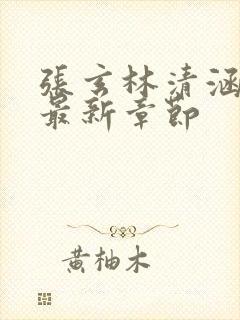 張玄林清涵
最新章節
黃柚木